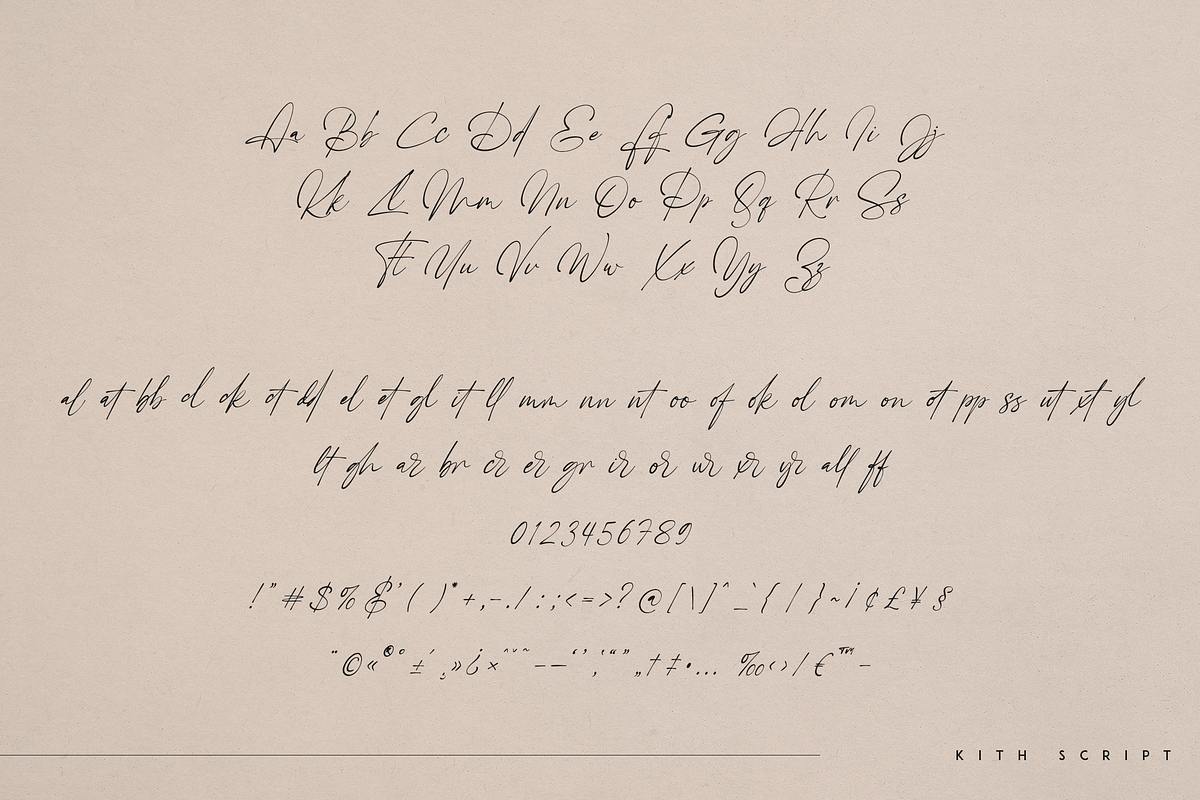 Aa Bb Cc Dd Ee Ff Gg Hh Ii Jj
Kk Ll Mm Nn Oo Pp Qq Rr Ss
Tt Uu Vv Ww Xx Yy Zz
al at bb cl ck ct dd el et gl it ll mm nn nt oo of ok ol om on ot pp ss ut xt yl
lt gh ar br cr er gr ir or ur xr yr all ff
0123456789
!"#$%&'()*+,-./:;<=>?@[\]^_`{|}~¡¢£¥§
¨©«®°±´¸»¿רˆˇ˘˜–—‘’‚‛“”„†‡•…‰‹›/€™−
KITH SCRIPT